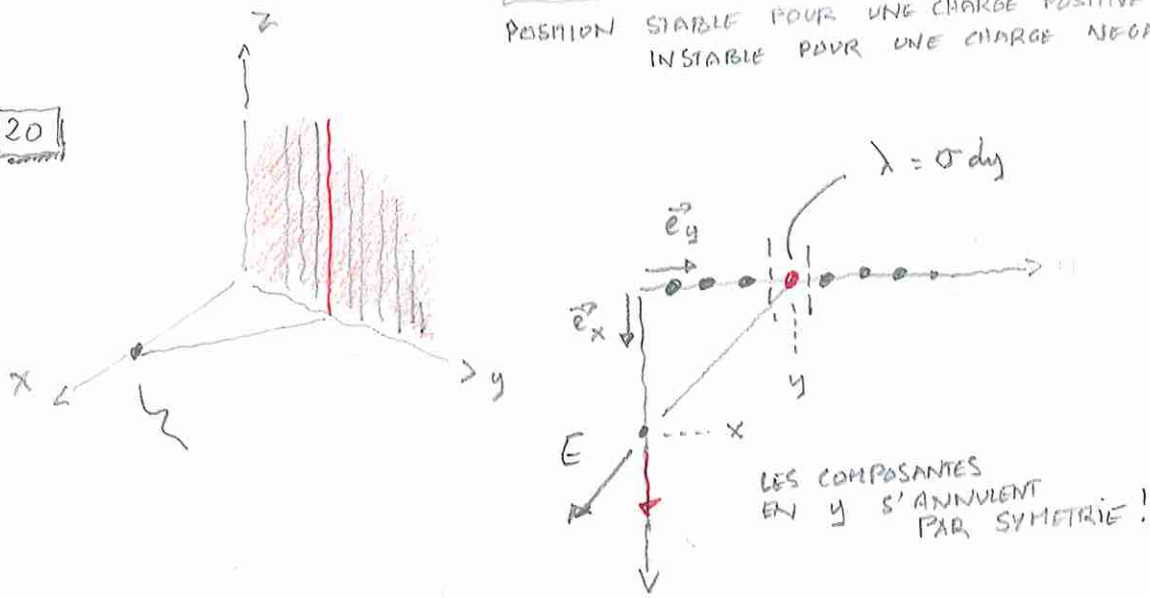 POSITION STABLE POUR UNE CHARGE POSITIVE
INSTABLE POUR UNE CHARGE NEGA
20
z
x
y
λ = σ dy
e⃗y
e⃗x
y
x
E
LES COMPOSANTES
EN y S'ANNULENT
PAR SYMETRIE !